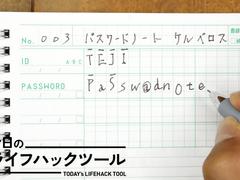 No. 003 パスワードノート ケルベロス
ID TEJI
PASSWORD PaSsw@dnote
今日の
ライフハックツール
TODAY's LIFEHACK TOOL